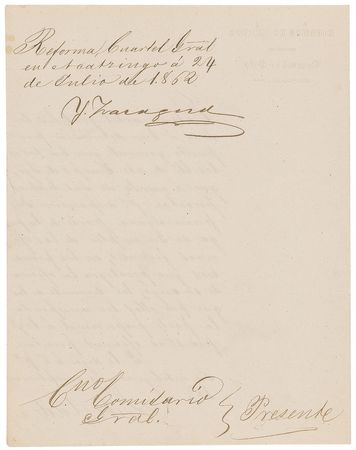 Reforma, Cuartel Gral
en Acatzingo á 24
de Julio de 1.862
Y. Zaragoza
C.no Comisario
Gral.
Presente